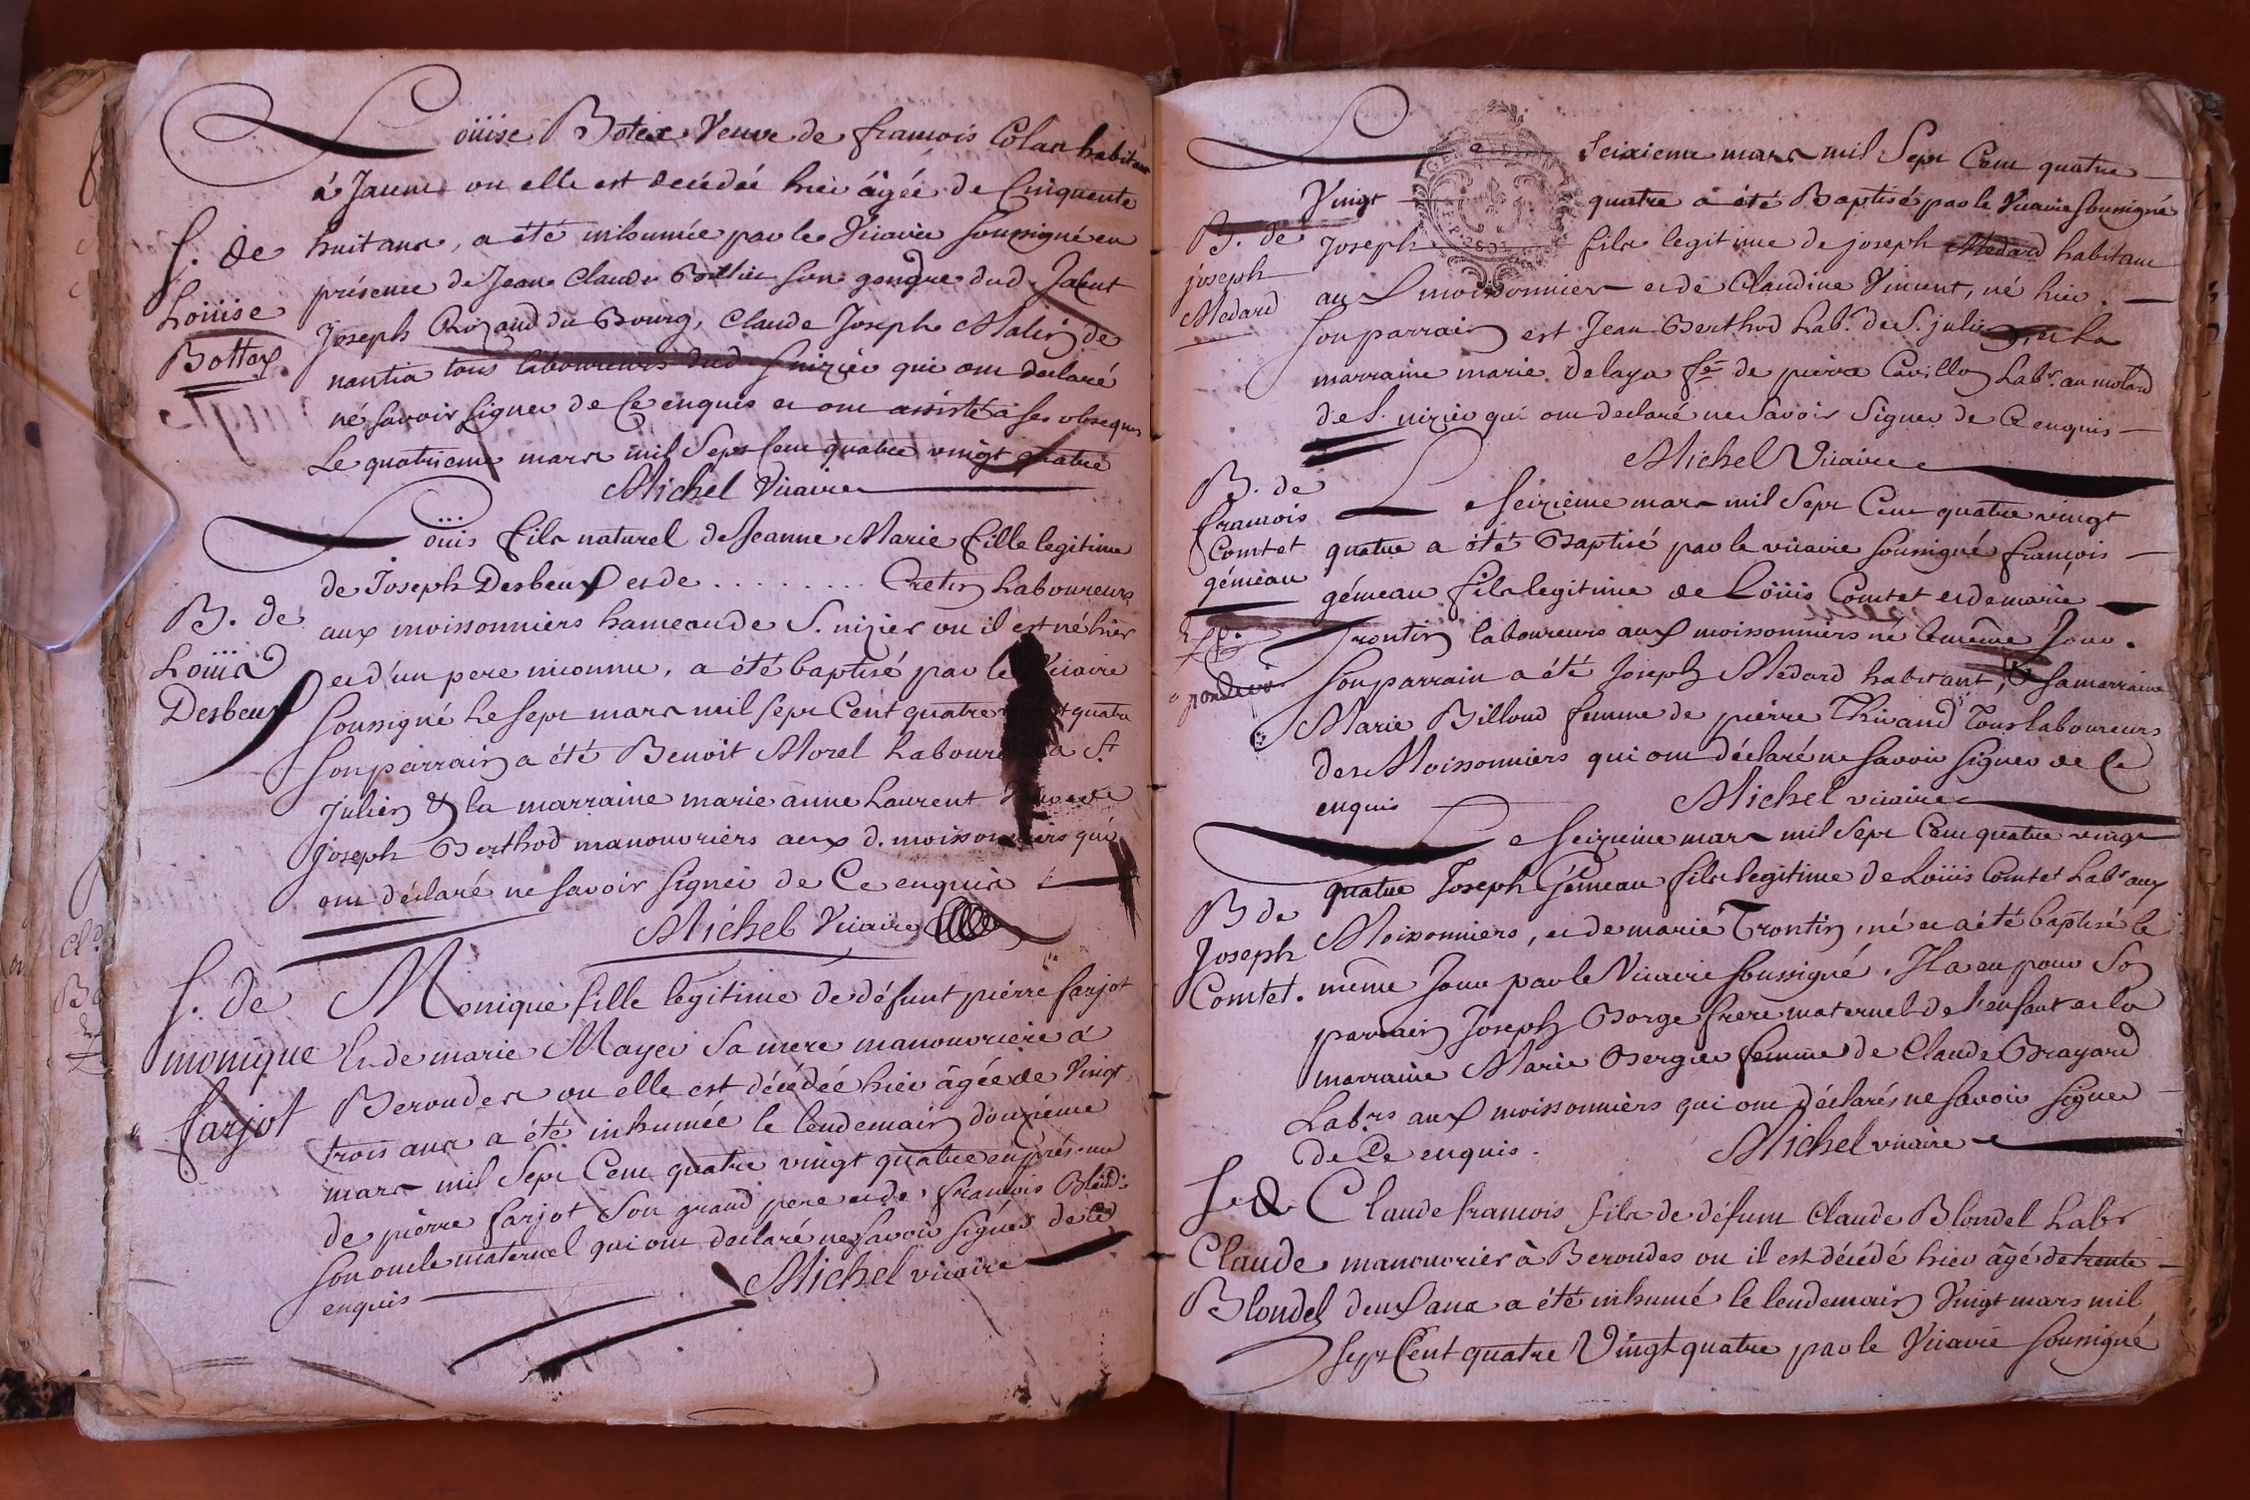 Loüise Botex Veuve de francois Colas habitant
à Jaсun ou elle est decédée hier âgée de Cinquente
S. de
Loüise
Bottex
huit ans, a été inhumée par le Vicaire soussigné en
présence de Jean Claude Bollier son gendre dud.
Joseph du Bourg, Claude Joseph de
nantia tous laboureurs dud qui ont declaré
ne savoir signer de Ce enquis et ont assisté à ses obseques
Le quatrieme mars mil Sept Cent quatre vingt quatre
Michel Vicaire
B. de
Loüis
Desbeuf
Loüis fils naturel de Jeanne Marie fille legitime
de Joseph Desbeuf et de ......... Cretin Laboureurs
aux moissonniers hameau de S. nizier ou il est né hier
et d'un pere inconnu, a été baptisé par le Vicaire
soussigné Le sept mars mil sept Cent quatre vingt quatre
son parrain a été Benoit Morel Laboureur a St.
Julien & la marraine marie anne Laurent
joseph Berthod manouvriers aux d. moissonniers qui
ont déclaré ne savoir signer de Ce enquis
Michel Vicaire
S. de
monique
farjot
Monique fille legitime de défunt piérre farjot
Et de marie Mayer sa mere manouvriere à
Beroudes ou elle est décédée hier âgée de Vingt
trois ans a été inhumée le lendemain douzieme
mars mil Sept Cent quatre vingt quatre en présence
de piérre farjot son grand pere et de francois
son oncle maternel qui ont declaré ne savoir signer de Ce
enquis
Michel vicaire
Le Seizieme mars mil Sept Cent quatre
Vingt quatre a été Baptisé par le Vicaire soussigné
B. de
joseph
Medard
Joseph fils legitime de joseph Medard habitant
aux moissonniers et de Claudine Vincent, né hier.
son parrain est Jean Berthod Lab.r de S. julien et la
marraine marie Delaya fe de pierre Cavillon Labr. au molard
de S. nizier qui ont declaré ne savoir signer de Ce enquis
Michel Vicaire
B. de
francois
Comtet
gémeau
Le seizieme mars mil Sept Cent quatre vingt
quatre a été Baptisé par le vicaire soussigné françois
gémeau fils legitime de Loüis Comtet et de marie
Trontin laboureurs aux moissonniers né le même Jour.
son parrain a été Joseph Medard habitant, & sa marraine
Marie Billoud femme de piérre Thivaud Tous laboureurs
des Moissonniers qui ont déclaré ne savoir signer de Ce
enquis
Michel vicaire
B de
Joseph
Comtet.
Le seizieme mars mil Sept Cent quatre vingt
quatre Joseph Gémeau fils legitime de Loüis Comtet Labr aux
Moixonniers, et de marie Trontin, né et a été baptisé le
même Jour par le Vicaire soussigné. Il a eu pour son
parrain Joseph Borge frere maternel de l'enfant et la
marraine Marie Bergier femme de Claude Brayard
Lab.rs aux moissonniers qui ont déclarés ne savoir signer
de Ce enquis.
Michel vicaire
S. de
Claude
Blondel
Claude francois fils de défunt Claude Blondel Labr
manouvrier à Beroudes ou il est décédé hier âgé de trente
deux ans a été inhumé le lendemain Vingt mars mil
sept Cent quatre Vingt quatre par le Vicaire soussigné